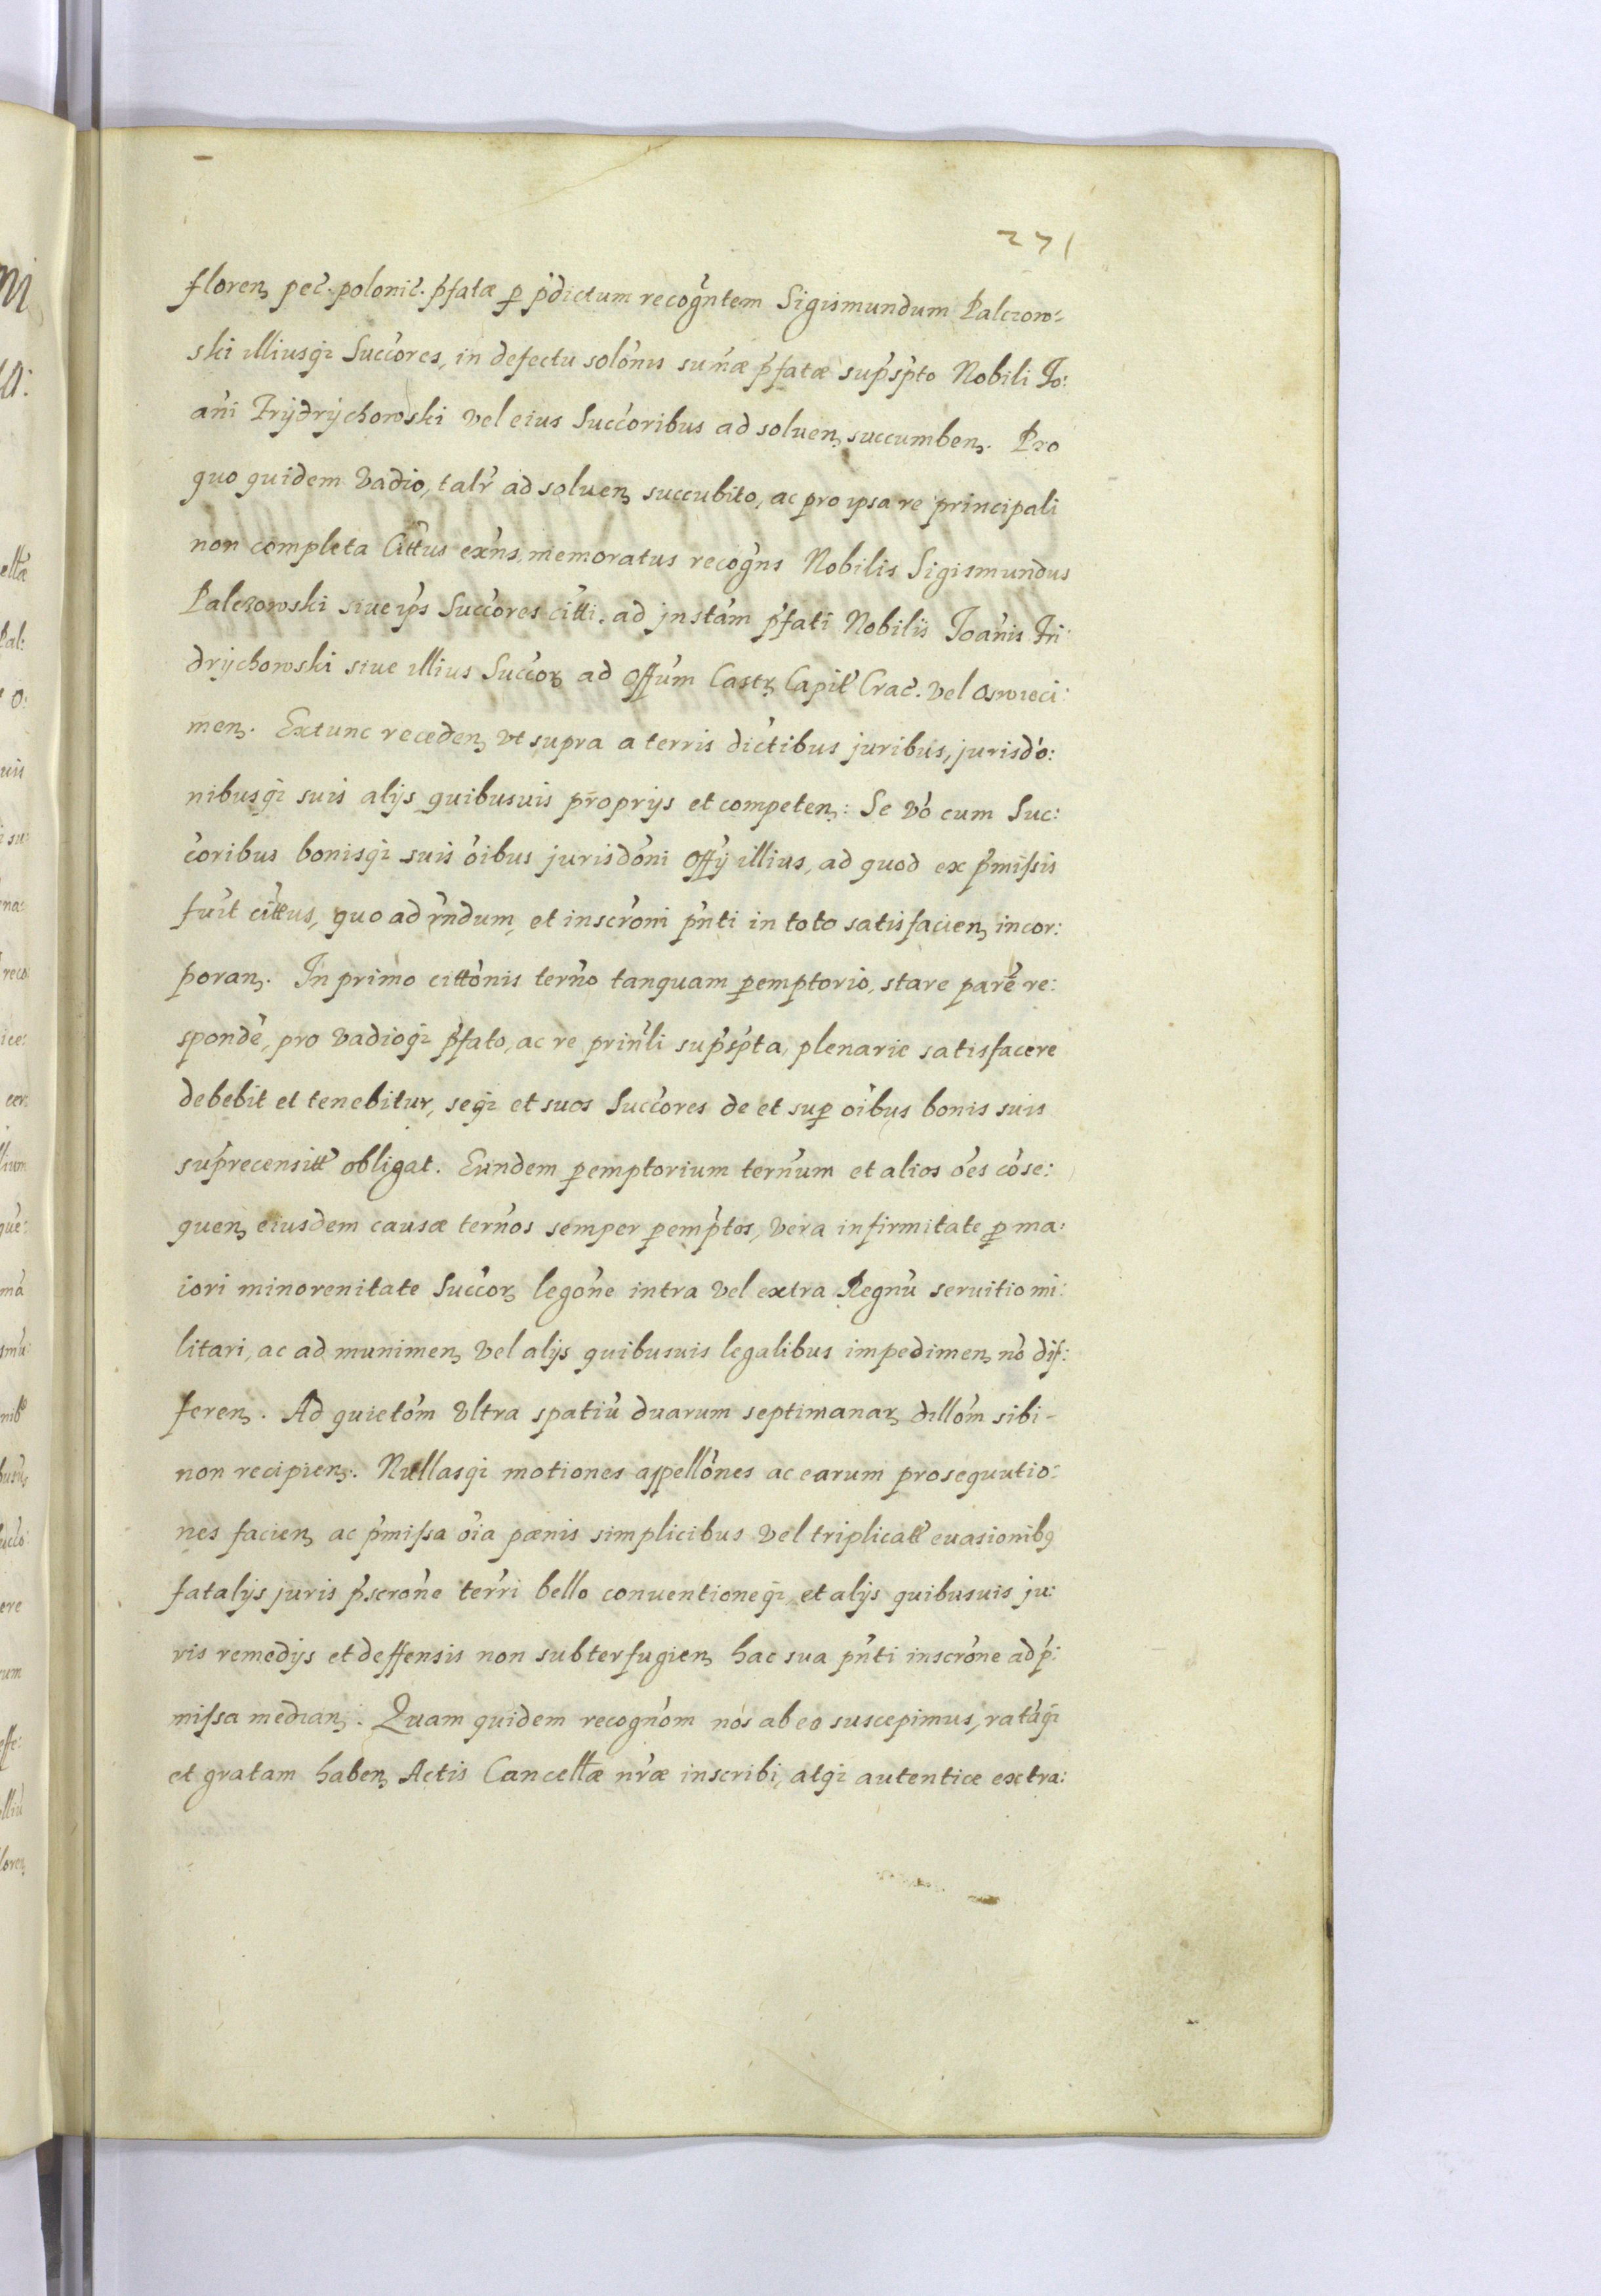 271
floren̄ pec̄. polonic̄. p̄fatæ ꝑ p̄dictum recogn̄tem Sigismundum Palczow=
ski illiusq̄ Succ̄ores, in defectu solōnis sum̄æ p̄fatæ sup̄sp̄to Nobili Jo:
an̄i Frÿdrÿchowski vel eius Succ̄oribus ad soluen̄ succumben̄. Pro
quo quidem vadio, talr̄ ad soluen̄ succubito, ac pro ipsa re principali
non completa Citt̄us exn̄s, memoratus recogn̄s Nobilis Sigismundus
Palczowski siue ip̄s Succ̄ores citt̄i. ad jnstām p̄fati Nobilis Joan̄is Fri:
drÿchowski siue illius Succ̄oꝝ ad Off̄um Castr̄ Capit̄ Crac̄. vel Oswieci:
men̄. Extunc receden̄ vt supra a terris dictibus juribus, jurisdo̅:
nibusq̄ suis alijs quibusuis proprijs et competen̄: Se vō cum Suc:
c̄oribus bonisq̄ suis ōibus jurisdōni Off̄ÿ illius, ad quod ex p̄missis
fuīt citt̄us, quo ad rn̄dum, et inscrōni pn̄ti in toto satisfacien̄ incor:
poran̄. In primo cittōnis tern̄o tanquam ꝑemptorio, stare parē re:
spondē, pro vadioq̄ p̄fato, ac re prin̄li sup̄sp̄ta, plenarie satisfacere
debebit et tenebitur, seq̄ et suos Succ̄ores de et suꝑ ōibus bonis suis
sup̄recensitt̄ obligat. Eundem ꝑemptorium tern̄um et alios ōes cōse:
quen̄ eiusdem causæ tern̄os semper ꝑemp̄tos, vera infirmitate ꝑ ma:
iori minorenitate Succ̄oꝝ legōne intra vel extra Regnū seruitio mi:
litari, ac ad munimen̄ vel alijs quibusuis legalibus impedimen̄ nō dif:
feren̄. Ad quietōm vltra spatiū duarum septimanaꝝ dillōm sibi-
non recipien̄. Nullasq̄ motiones appellōnes ac earum prosequutio:
nes facien̄ ac p̄missa ōia pœnis simplicibus vel triplicatt̄ euasionibꝯ
fatalijs juris p̄scrōne terr̄i bello conuentioneq̄, et alijs quibusuis ju:
ris remedijs et deffensis non subterfugien̄ hac sua pn̄ti inscrōne ad p̄:
missa median̄. Quam quidem recognōm nos ab eo suscepimus, ratāq̄
et gratam haben̄ Actis Cancell̄æ nr̄æ inscribi, atq̄ autentice extra: